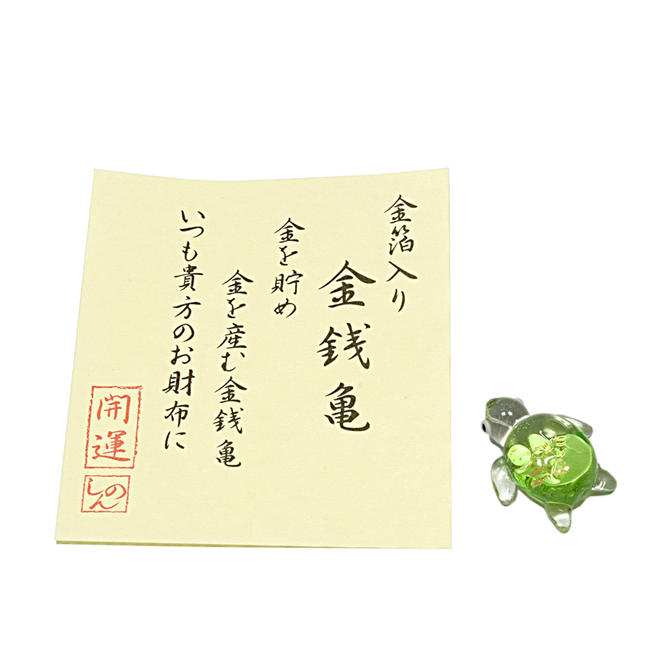 金箔入り
金銭亀
金を貯め
金を産む金銭亀
いつも貴方のお財布に
開運
しんの